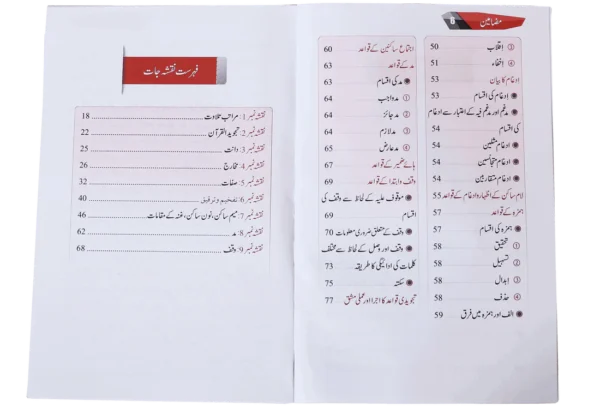 مضامین 8
③ اقلاب 50
④ اخفاء 51
ادغام کا بیان 53
ادغام کی اقسام 53
مدغم اور مدغم فیہ کے اعتبار سے ادغام
کی اقسام 54
ادغام مثلین 54
ادغام متجانسین 54
ادغام متقاربین 54
لام ساکن کے اظہار و ادغام کے قواعد 55
ہمزہ کے قواعد 57
ہمزہ کی اقسام 57
① تحقیق 58
② تسہیل 58
③ ابدال 58
④ حذف 58
الف اور ہمزہ میں فرق 59
اجتماع ساکنین کے قواعد 60
مد کے قواعد 63
مد کی اقسام 63
① مد واجب 64
② مد جائز 64
③ مد لازم 64
④ مد عارض 65
ہائے ضمیر کے قواعد 67
وقف و ابتدا کے قواعد 69
موقوف علیہ کے لحاظ سے وقف کی
اقسام 69
وقف کے متعلق ضروری معلومات 70
وقف اور وصل کے لحاظ سے مختلف
کلمات کی ادائیگی کا طریقہ 73
سکتہ 75
تجویدی قواعد کا اجرا اور عملی مشق 77
فہرست نقشہ جات
نقشہ نمبر 1: مراتب تلاوت 18
نقشہ نمبر 2: تجوید القرآن 22
نقشہ نمبر 3: دانت 25
نقشہ نمبر 4: مخارج 26
نقشہ نمبر 5: صفات 32
نقشہ نمبر 6: تفخیم و ترقیق 40
نقشہ نمبر 7: میم ساکن، نون ساکن، غنہ کے مقامات 46
نقشہ نمبر 8: مد 62
نقشہ نمبر 9: وقف 68